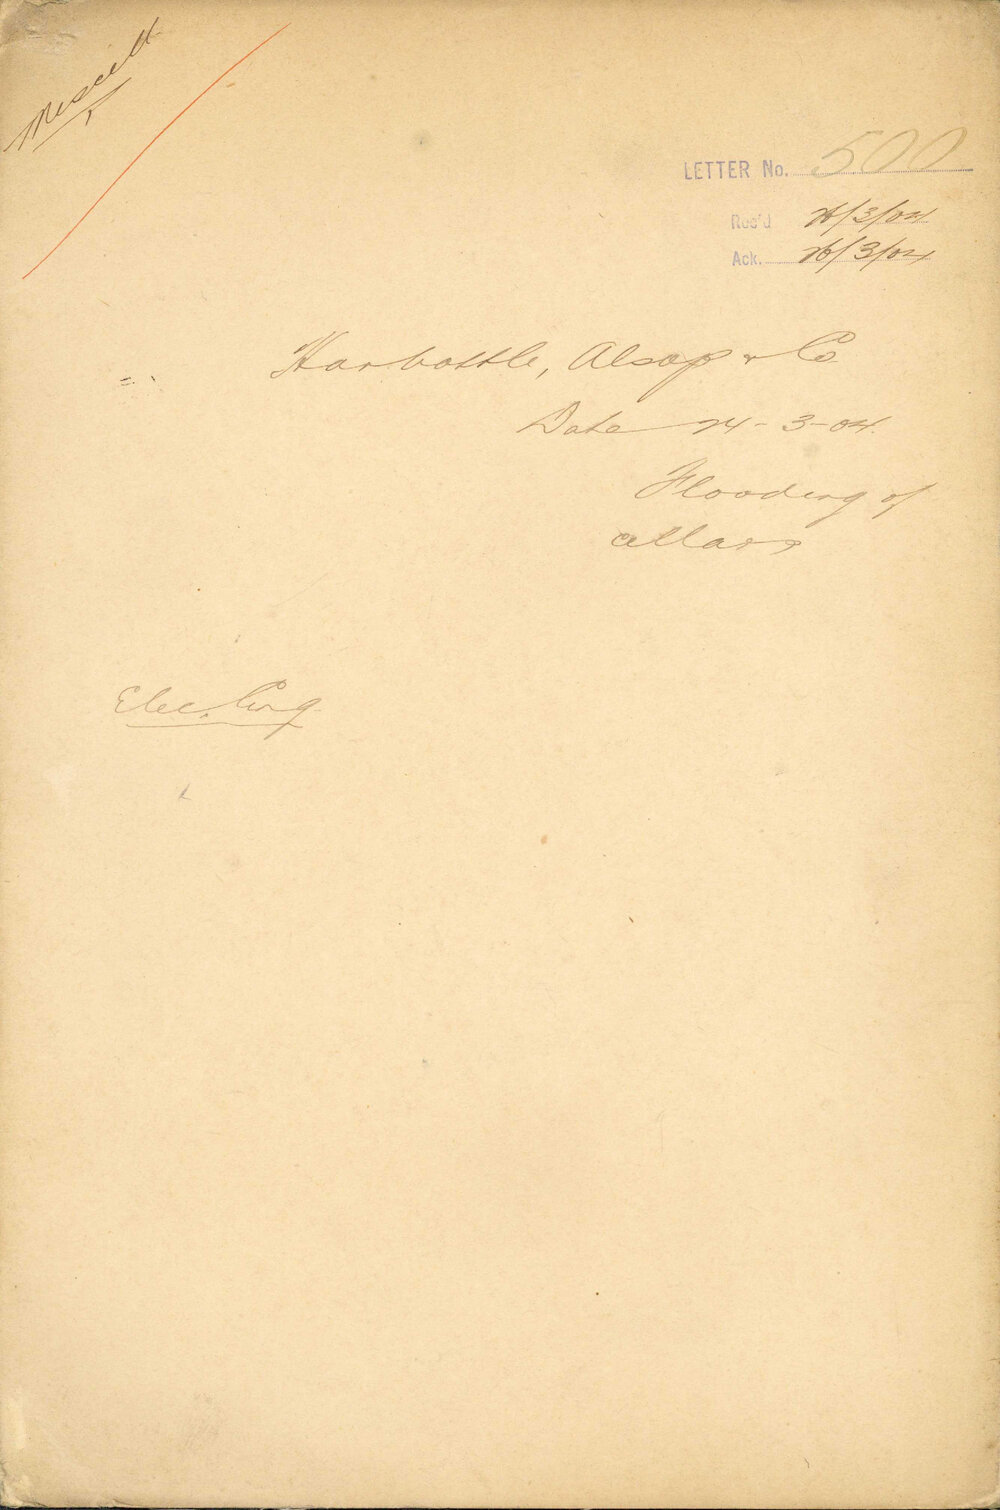 Miscell
LETTER No. 500
Rec'd 26/3/04
Ack. 26/3/04
Harbottle, Alsop & Co
Date 24-3-04.
Flooding of
cellars
Elec. Eng